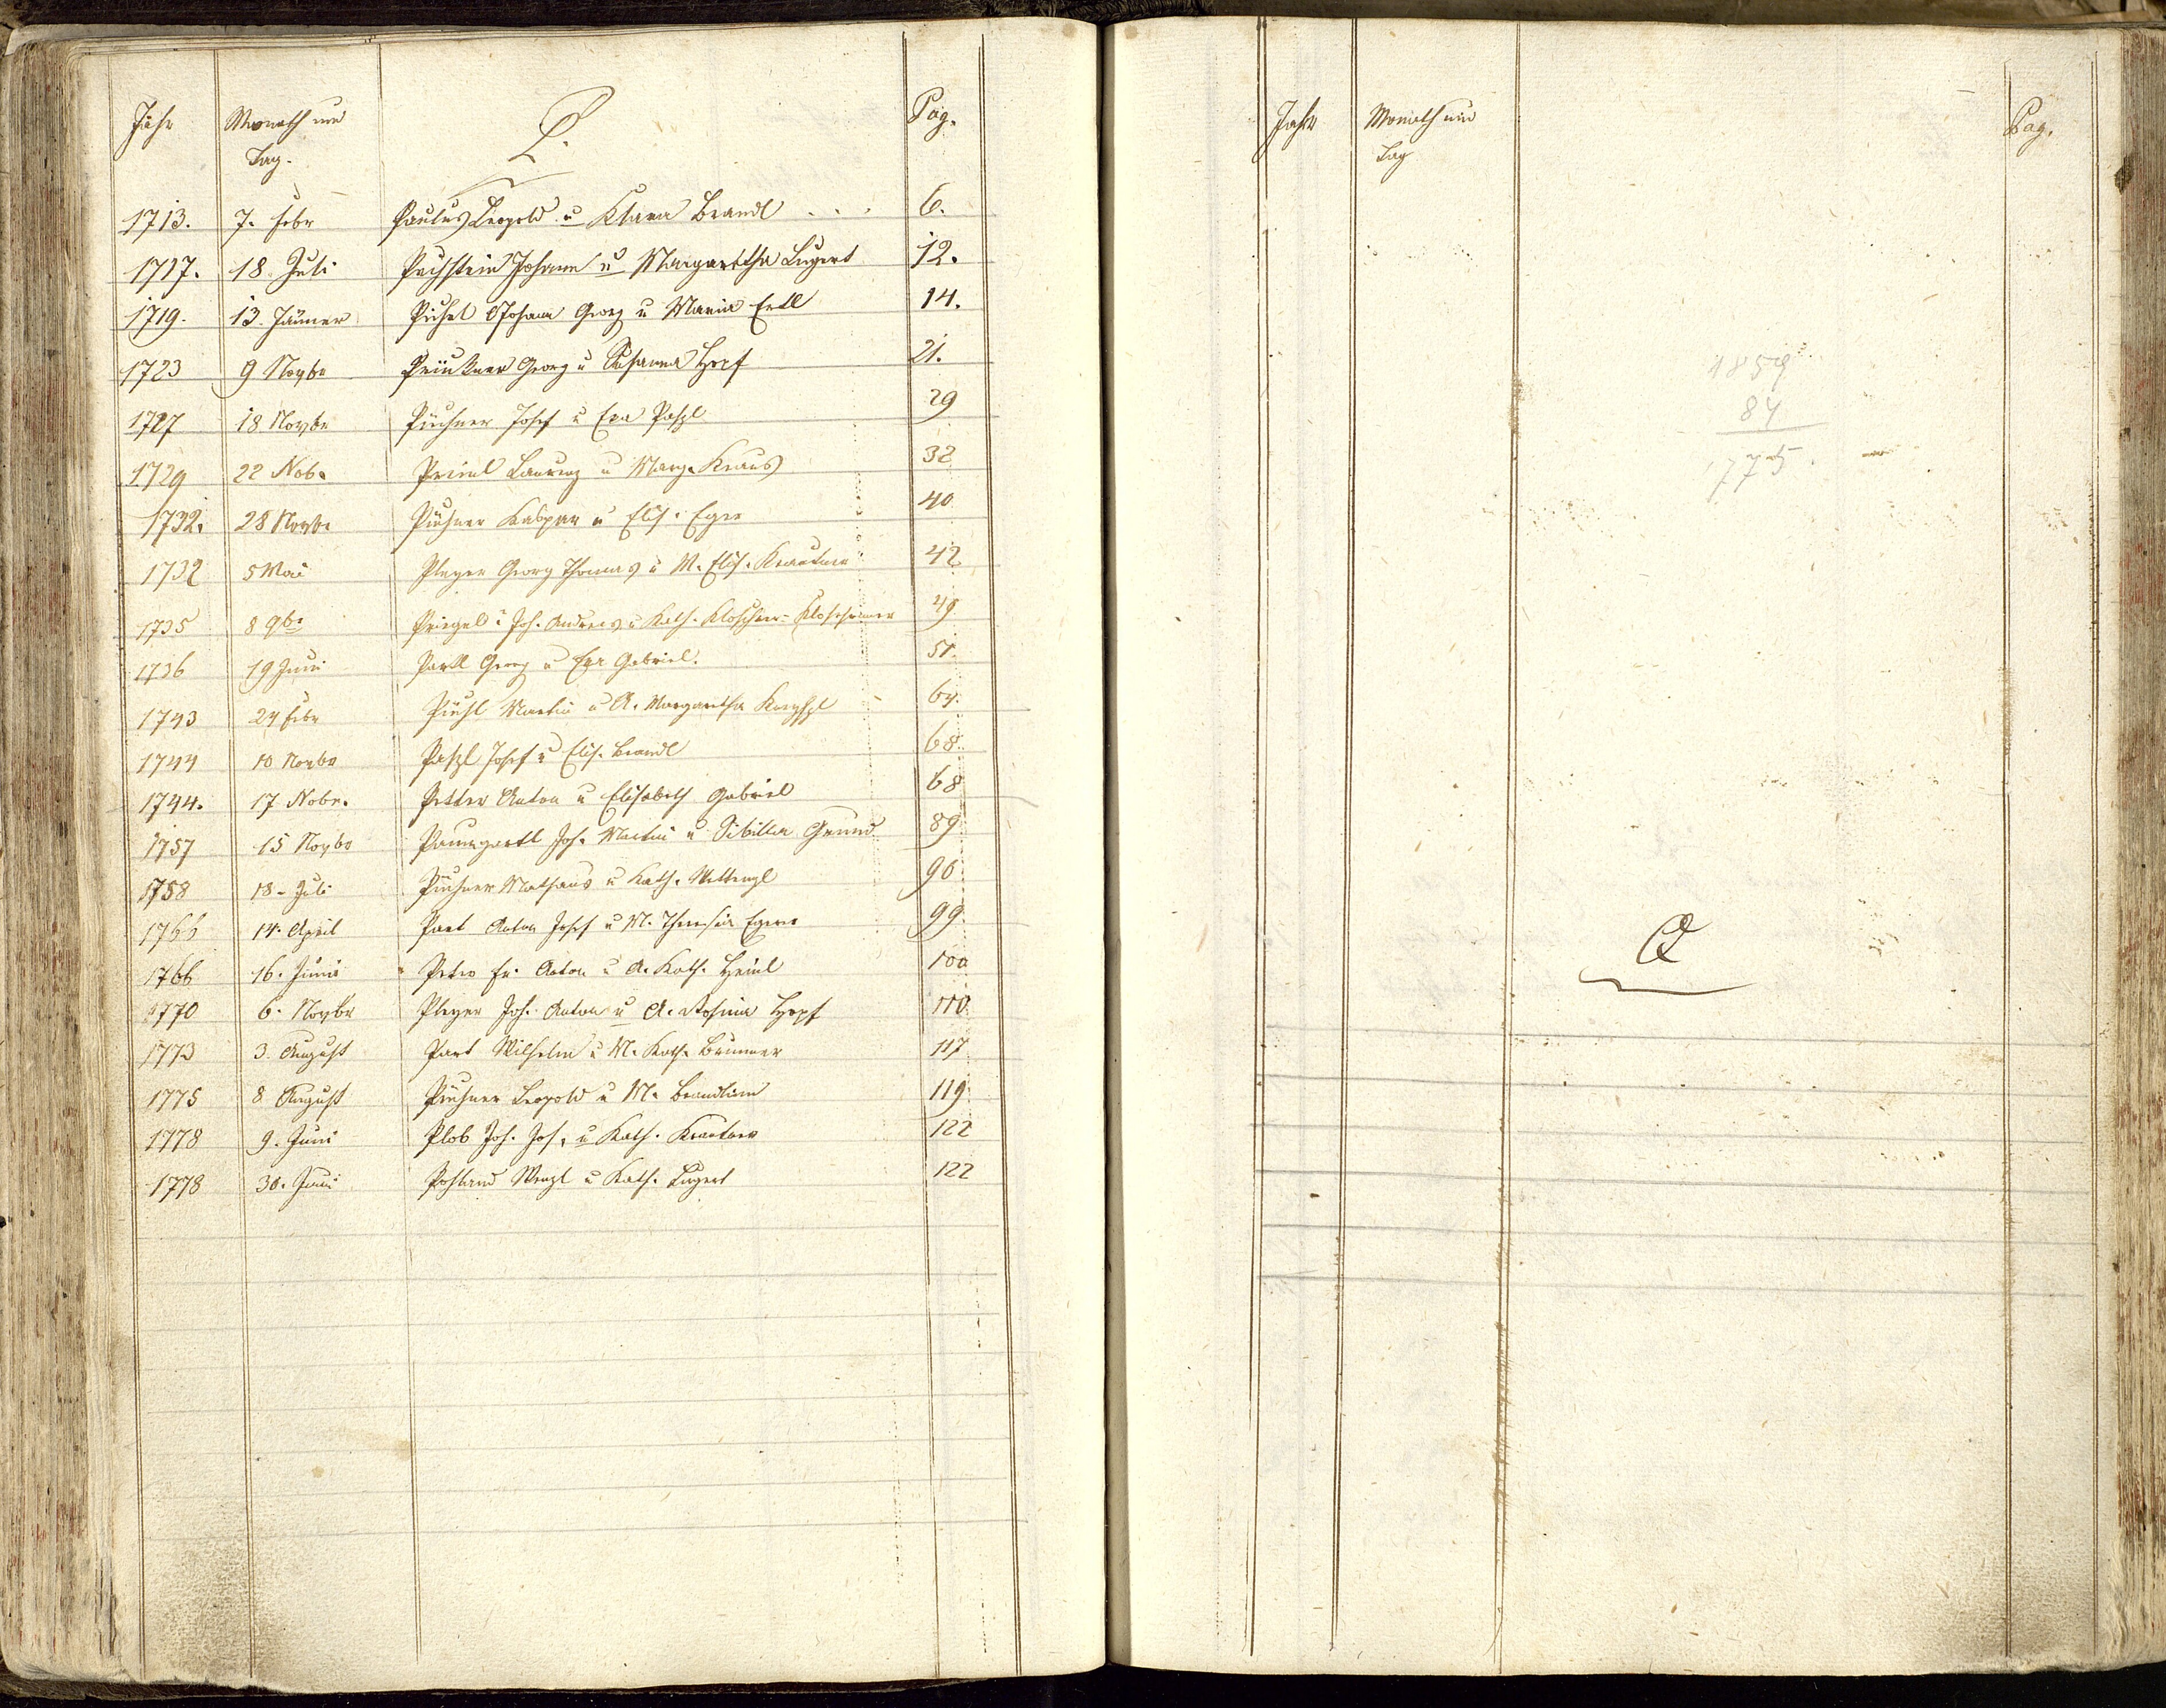 Jahr Monath und Tag. P. Pag.
1713. 7. Febr Paulus Leopold u Klara Brandl . . . 6.
1717. 18. Juli Pachstein Johann u Margaretha Lugert 12.
1719. 13. Jänner Pichel Johann Georg u Maria Ertl 14.
1723 9 Novbr Georg u Susanna Hopf 21.
1727 18 Novbr Püchner Josef u Eva Paßl 29
1729 22 Nob. Laurenz u Marg. Kraus 32
1732. 28 Novbr Püchner Kaspar u Elis. Eger 40
1732 5 Mai Pleyer Georg Thomas u M. Elis. 42
1735 8 9br Joh. Andreas u Kath. 49
1736 19 Juni Partl Georg u Eva Gabriel. 51.
1743 24 Febr Püchl Martin u A. Margaretha 64.
1744 10 Novbr Paßl Josef u Elis. Brandl 68.
1744. 17 Nobr. Petter Anton u Elisabeth Gabriel 68
1757 15 Novbr Paumgartl Joh. Martin u Sibilla Grund 89
1758 18. Juli Püchner Mathaus u Kath. 90
1766 14. April Part Anton Josef u M. Theresia Egerer 99.
1766 16. Juni Peter Fr. Anton u A. Kath. Heinl 100
1770 6. Novbr Pleyer Joh. Anton u A. Rosina Hopf 110.
1773 3. August Part Wilhelm u M. Kath. Brunner 117
1775 8 August Püchner Leopold u M. 119
1778 9. Juni Plob Joh. Jos. u Kath. Krautner 122
1778 30. Juni Pohland Wenzl u Kath. Lugert 122
Jahr Monath und Tag Pag.
1859
84
1775.
Q